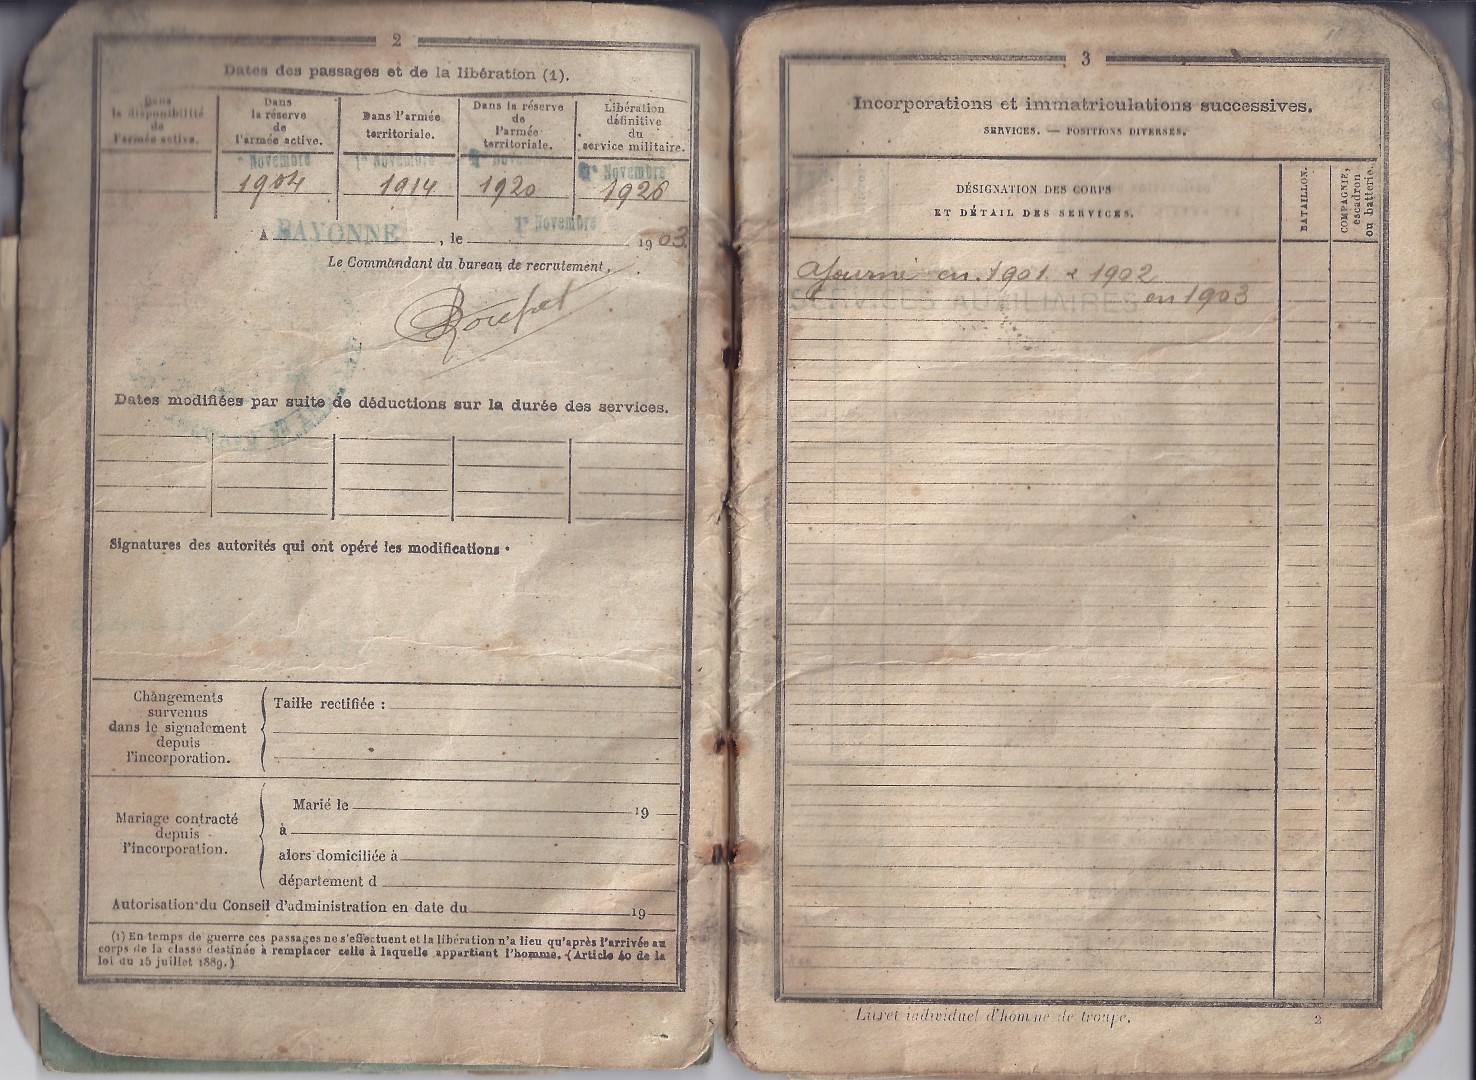 2
Dates des passages et de la libération (1).
Dans
la disponibilité
de
l'armée active.
Dans
la réserve
de
l'armée active.
Dans l'armée
territoriale.
Dans la réserve
de
l'armée
territoriale.
Libération
définitive
du
service militaire.
Novembre
1904
1r Novembre
1914
1r Novembre
1920
1r Novembre
1926
A BAYONNE, le 1r Novembre 1903.
Le Commandant du bureau de recrutement,
Dates modifiées par suite de déductions sur la durée des services.
Signatures des autorités qui ont opéré les modifications.
Changements
survenus
dans le signalement
depuis
l'incorporation.
Taille rectifiée :
Mariage contracté
depuis
l'incorporation.
Marié le 19
à
alors domiciliée à
département d
Autorisation du Conseil d'administration en date du 19
(1) En temps de guerre ces passages ne s'effectuent et la libération n'a lieu qu'après l'arrivée au
corps de la classe destinée à remplacer celle à laquelle appartient l'homme. (Article 40 de la
loi du 15 juillet 1889.)
3
Incorporations et immatriculations successives.
SERVICES. — POSITIONS DIVERSES.
DÉSIGNATION DES CORPS
ET DÉTAIL DES SERVICES.
BATAILLON.
COMPAGNIE,
escadron
ou batterie.
Ajourné en 1901 & 1902
SERVICES AUXILIAIRES en 1903
Livret individuel d'homme de troupe.
2